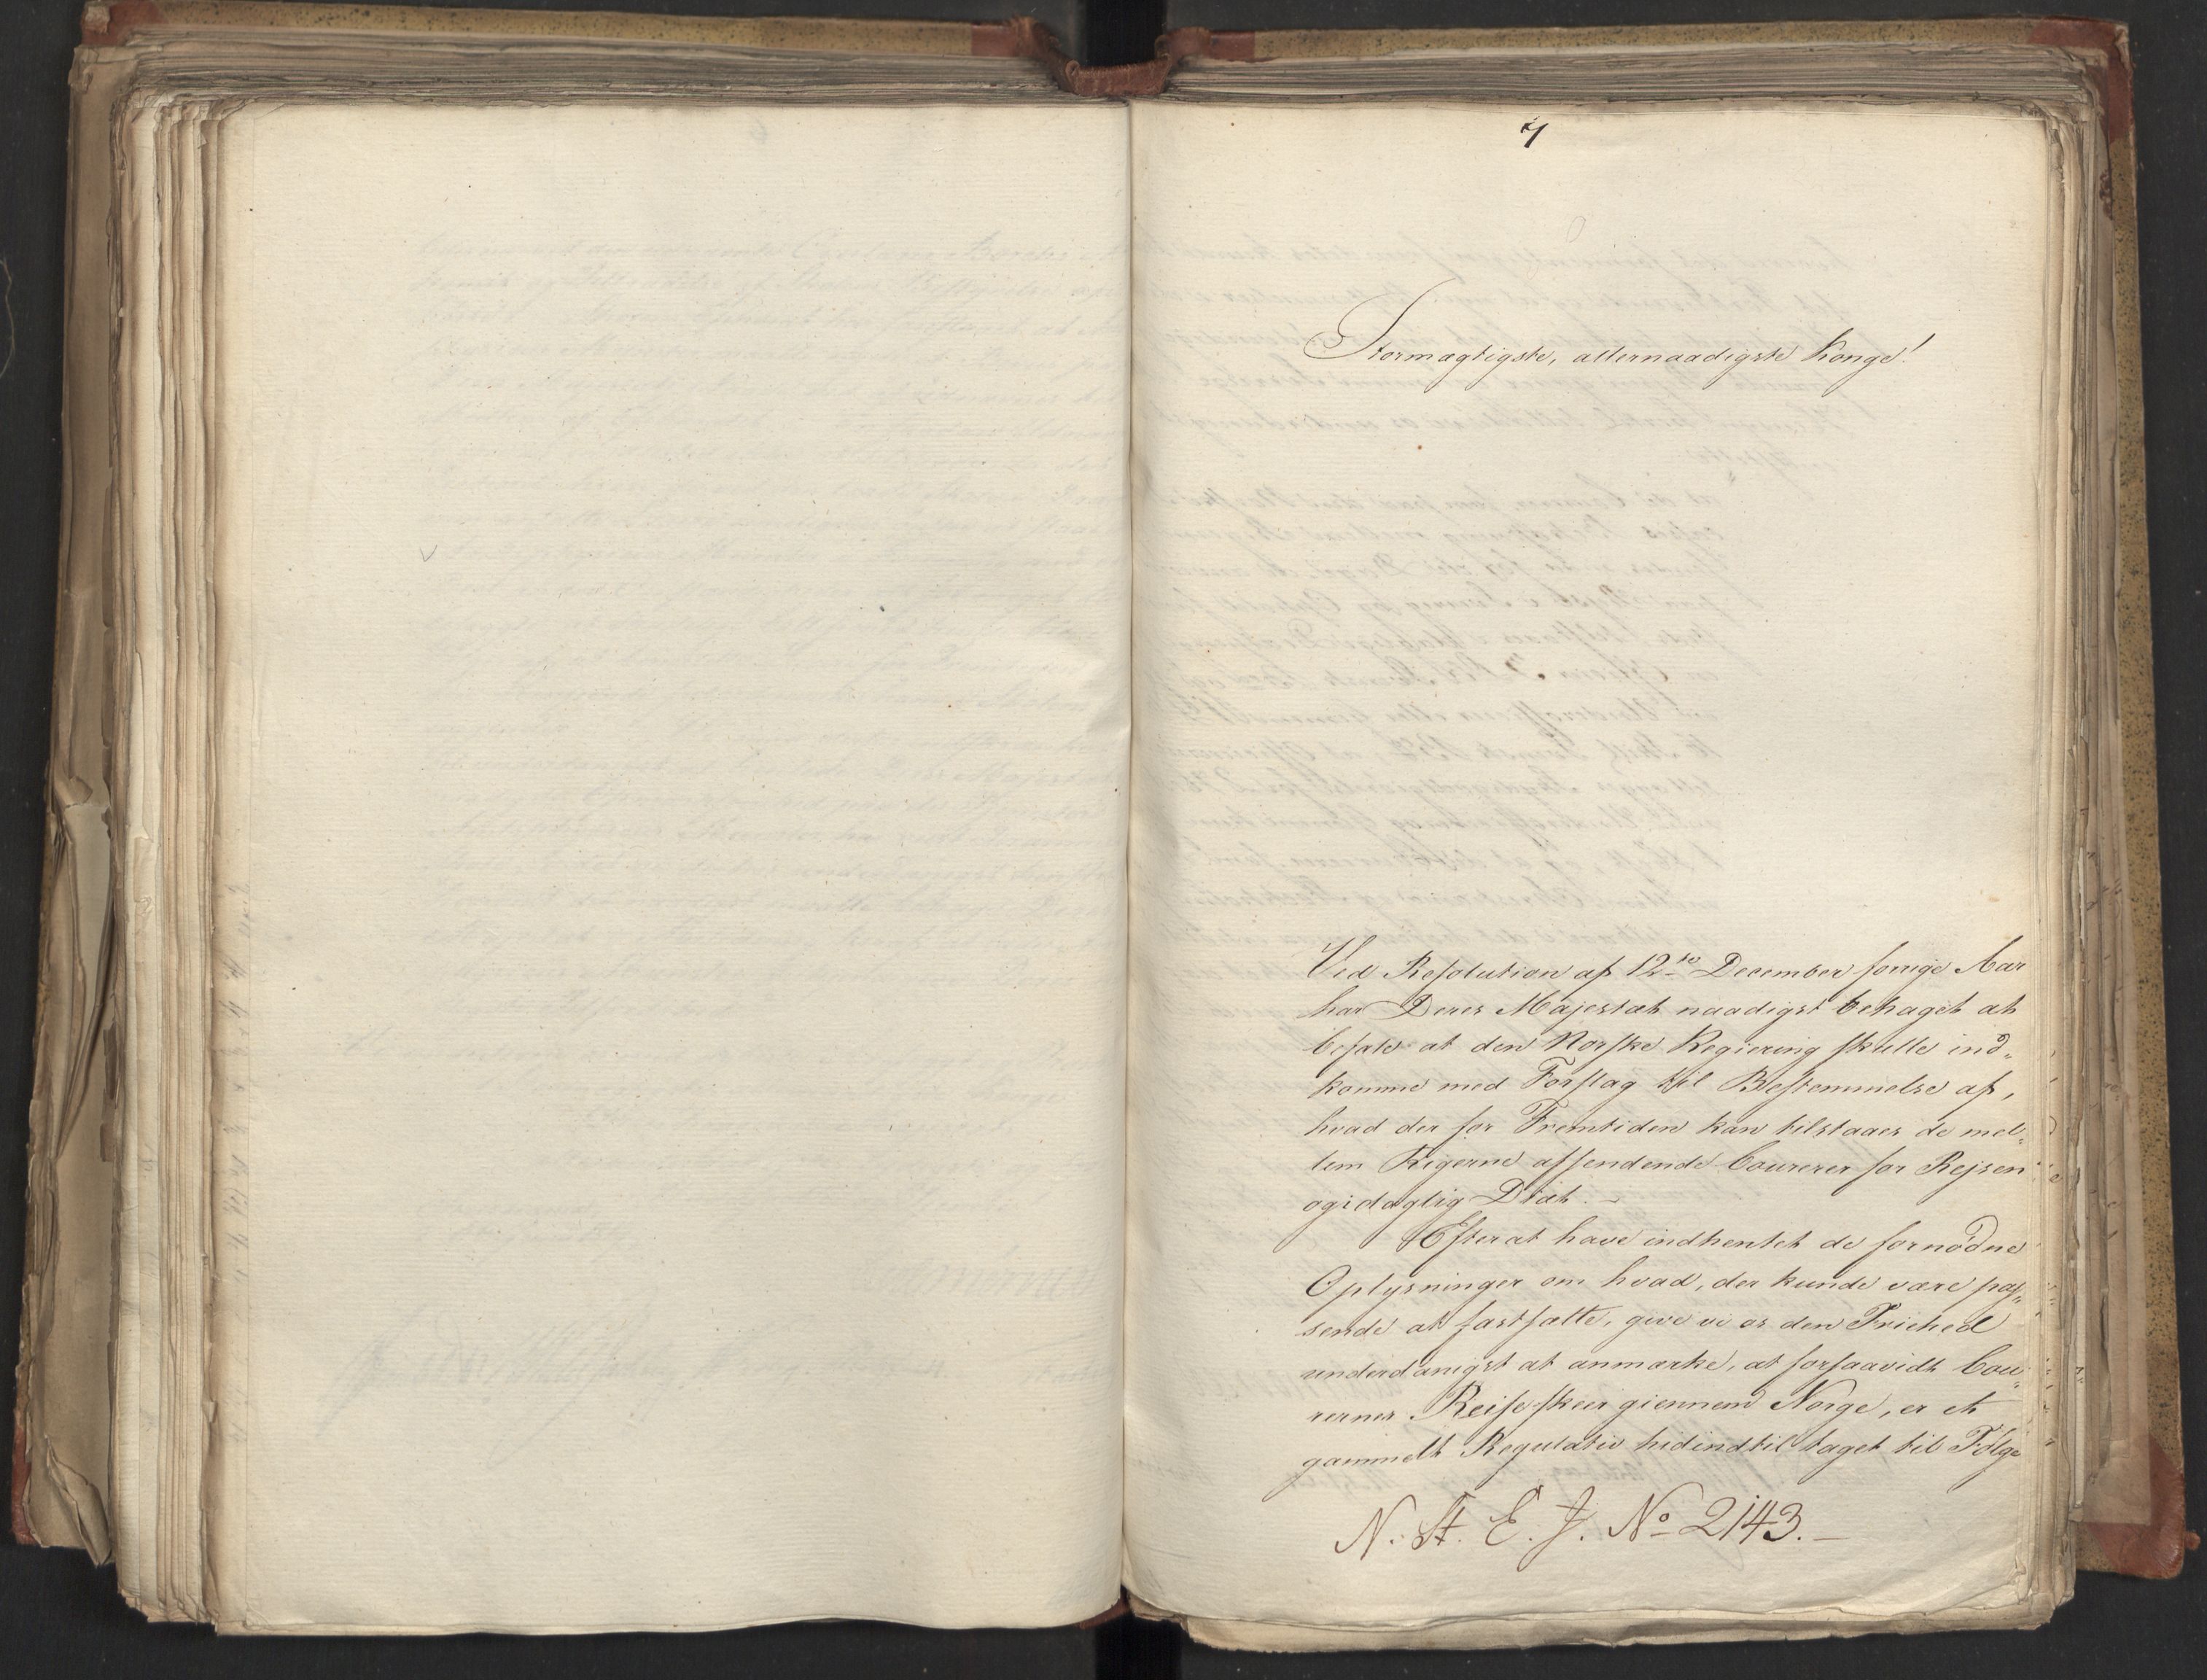 7
Stormægtigste, allernaadigste Konge!
Ved Resolution af 12te December forrige Aar
har Deres Majestæt naadigst behaget at
befale at den Norske Regiering skulle ind„
komme med Forslag til Bestemmelse af,
hvad der for Fremtiden kan tilstaaes de mel„
lem Rigerne afsendende Courerer for Rejsen
og i daglig Diæt. –
Efterat have indhentet de fornödne
Oplysninger om hvad, der kunde være pas„
sende at fastsætte, give vi os den Friehed
underdanigst at anmærke, at forsaavidt Cou„
rernes Reise skeer giennem Norge, er et
gammelt Regulativ hidindtil taget til Fölge
N. St. E. J. No 2143. –